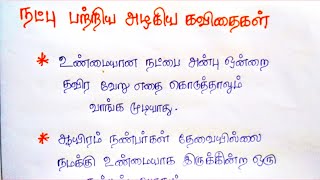 நட்பு பற்றிய அழகிய கவிதைகள்
* உண்மையான நட்பை அன்பு ஒன்றை
தவிர வேறு எதை கொடுத்தாலும்
வாங்க முடியாது.
* ஆயிரம் நண்பர்கள் தேவையில்லை
நமக்கு உண்மையாக இருக்கின்ற ஒரு